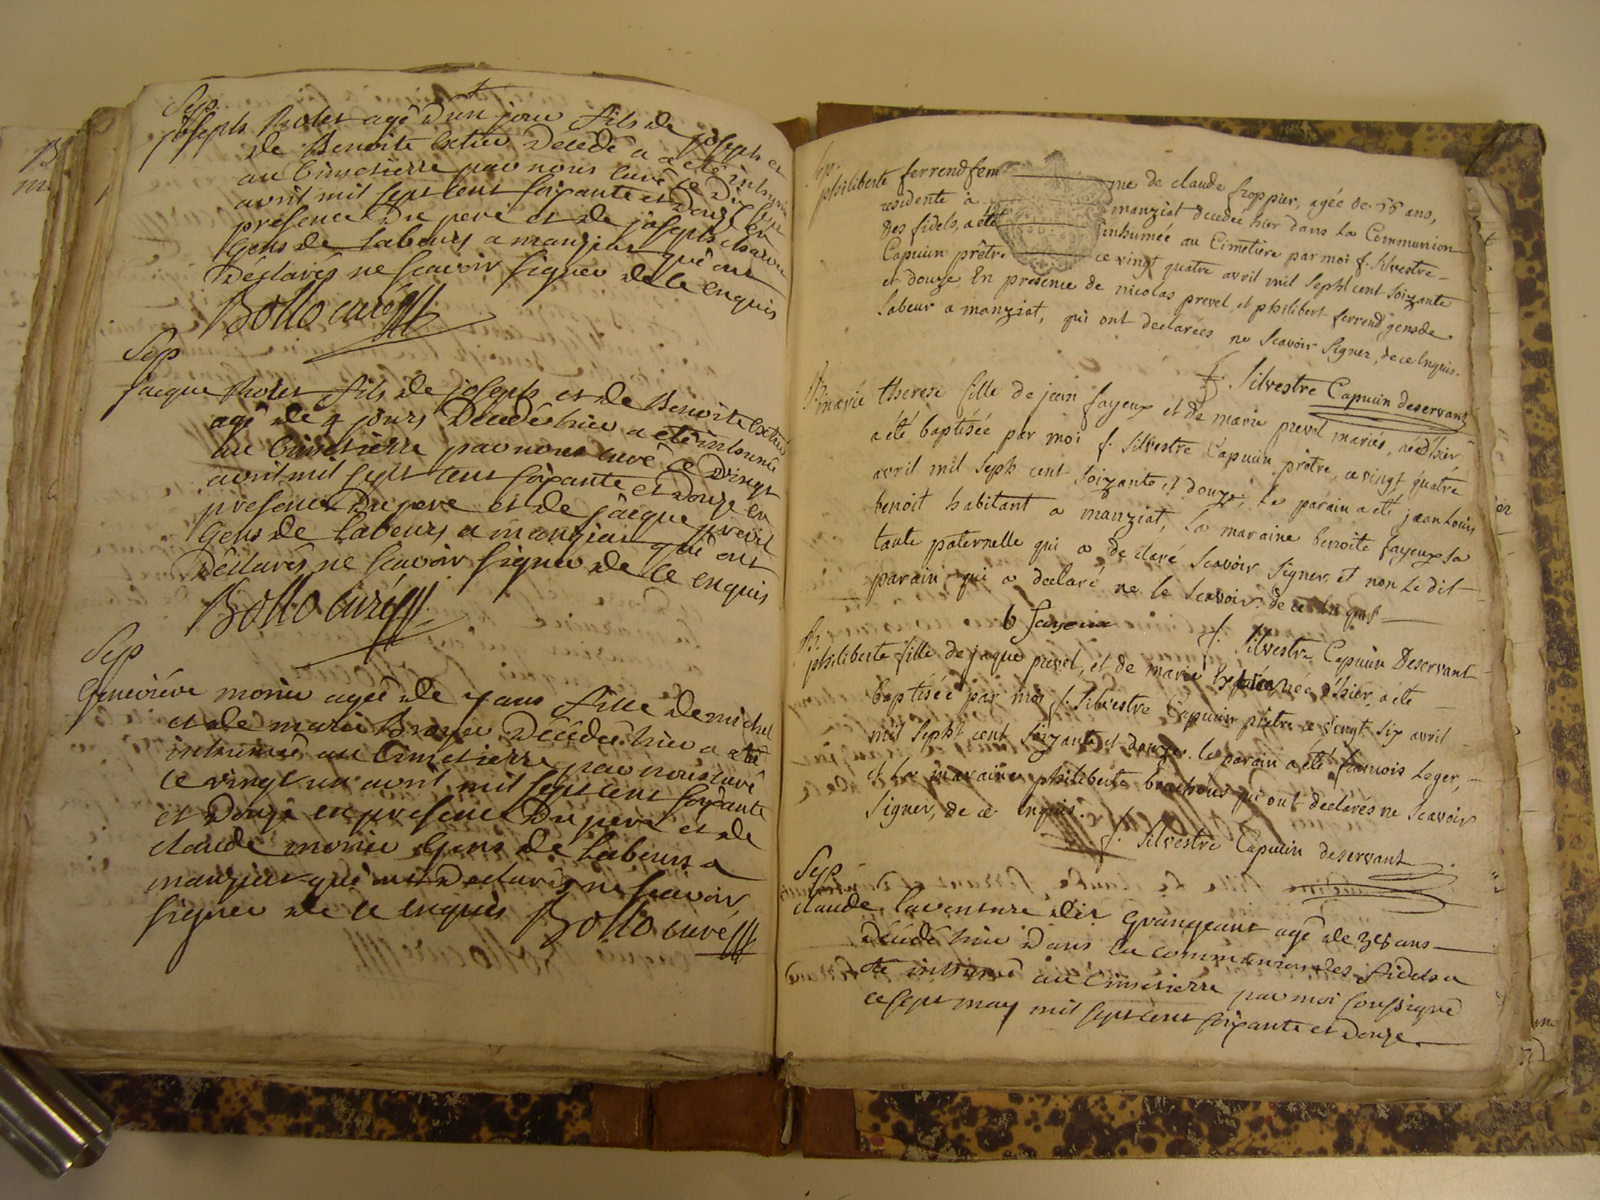 Sep
joseph Rolet agé d'un jour fils de joseph et
de Benoite decedé a été inhumé
au Cimetierre par nous curé ce
avril mil sept cent soixante et douze en
presence du pere et de joseph
gens de labeurs a manziat qui ont
déclarés ne scavoir signer de ce enquis
Bollo curé
Sep
jacque Rolet fils de joseph et de Benoite
agé de 4 jours decedé hier a été inhumé
au Cimetierre par nous curé ce vingt
avril mil sept cent soixante et douze en
presence du pere et de jacque prevel
gens de labeurs a manziat qui ont
déclarés ne scavoir signer de ce enquis
Bollo curé
Sep
Geneviéve morier agée de ans fille de michel
et de marie decedée hier a été
inhumée au Cimetierre par nous curé
ce vingt un avril mil sept cent soixante
et douze en presence du pere et de
claude morier gens de labeurs a
manziat qui ont declarés ne scavoir
signer de ce enquis Bollo curé
Sep.
philiberte ferrend fem me de claude froppier, agée de 56 ans,
residente a manziat decedée hier dans la Communion
des fidels, a eté inhumée au Cimetiere par moi f. Silvestre
Capucin prêtre ce vingt quatre avril mil sepht cent soizante
et douze En presence de nicolas prevel, et philibert ferrend gens de
labeur a manziat, qui ont declarées ne scavoir signer, de ce Enquis.
f. Silvestre Capucin deservant
B.
marie therese fille de jean fayeux et de marie prevel mariés, née d'hier
a été baptisée par moi f. Silvestre Capucin prêtre, ce vingt quatre
avril mil seph cent soizante et douze, Le parain a été jean Louis
benoit habitant a manziat, la maraine benoite fayeux sa
tante paternelle qui a declaré scavoir signer et non Le dit
parain, qui a declaré ne le scavoir de ce Enquis
b fayeux
f. Silvestre Capucin Deservant
B.
philiberte fille de jaque prevel, et de marie née d'hier, a été
baptisée par moi f. Silvestre Capucin prêtre ce vingt six avril
mil sepht cent soizante et douze. le parain a été francois Loger,
et La maraine philiberte brachoux qui ont declarés ne scavoir
signer, de ce enquis.
f. Silvestre Capucin deservant
Sep
claude laventure dit grangeant agé de 38 ans
decedé hier dans la communion des fidels a
été inhumé au Cimetierre par moi soussigné
ce sept may mil sept cent soixante et douze